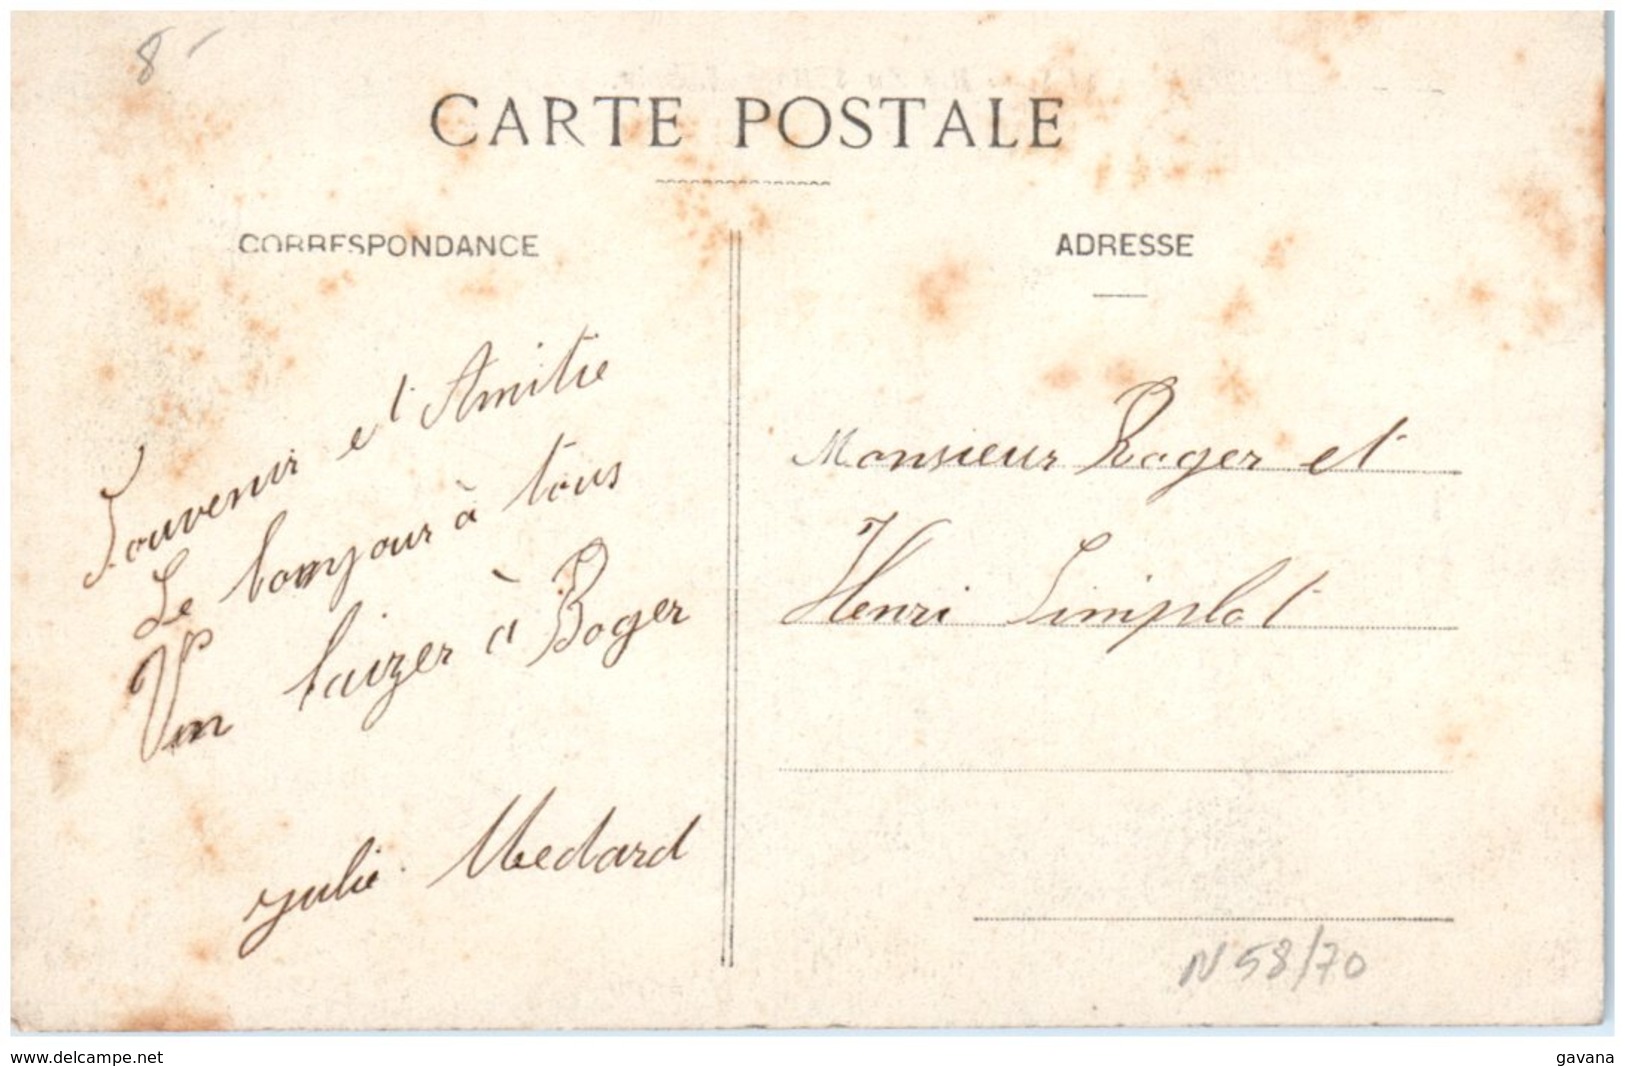 8-
CARTE POSTALE
CORRESPONDANCE
Souvenir et Amitie
Le bonjour à tous
Un baizer a Roger
Julie Medard
ADRESSE
Monsieur Roger et
Henri Simplot
N 58/70
www.delcampe.net
gavana